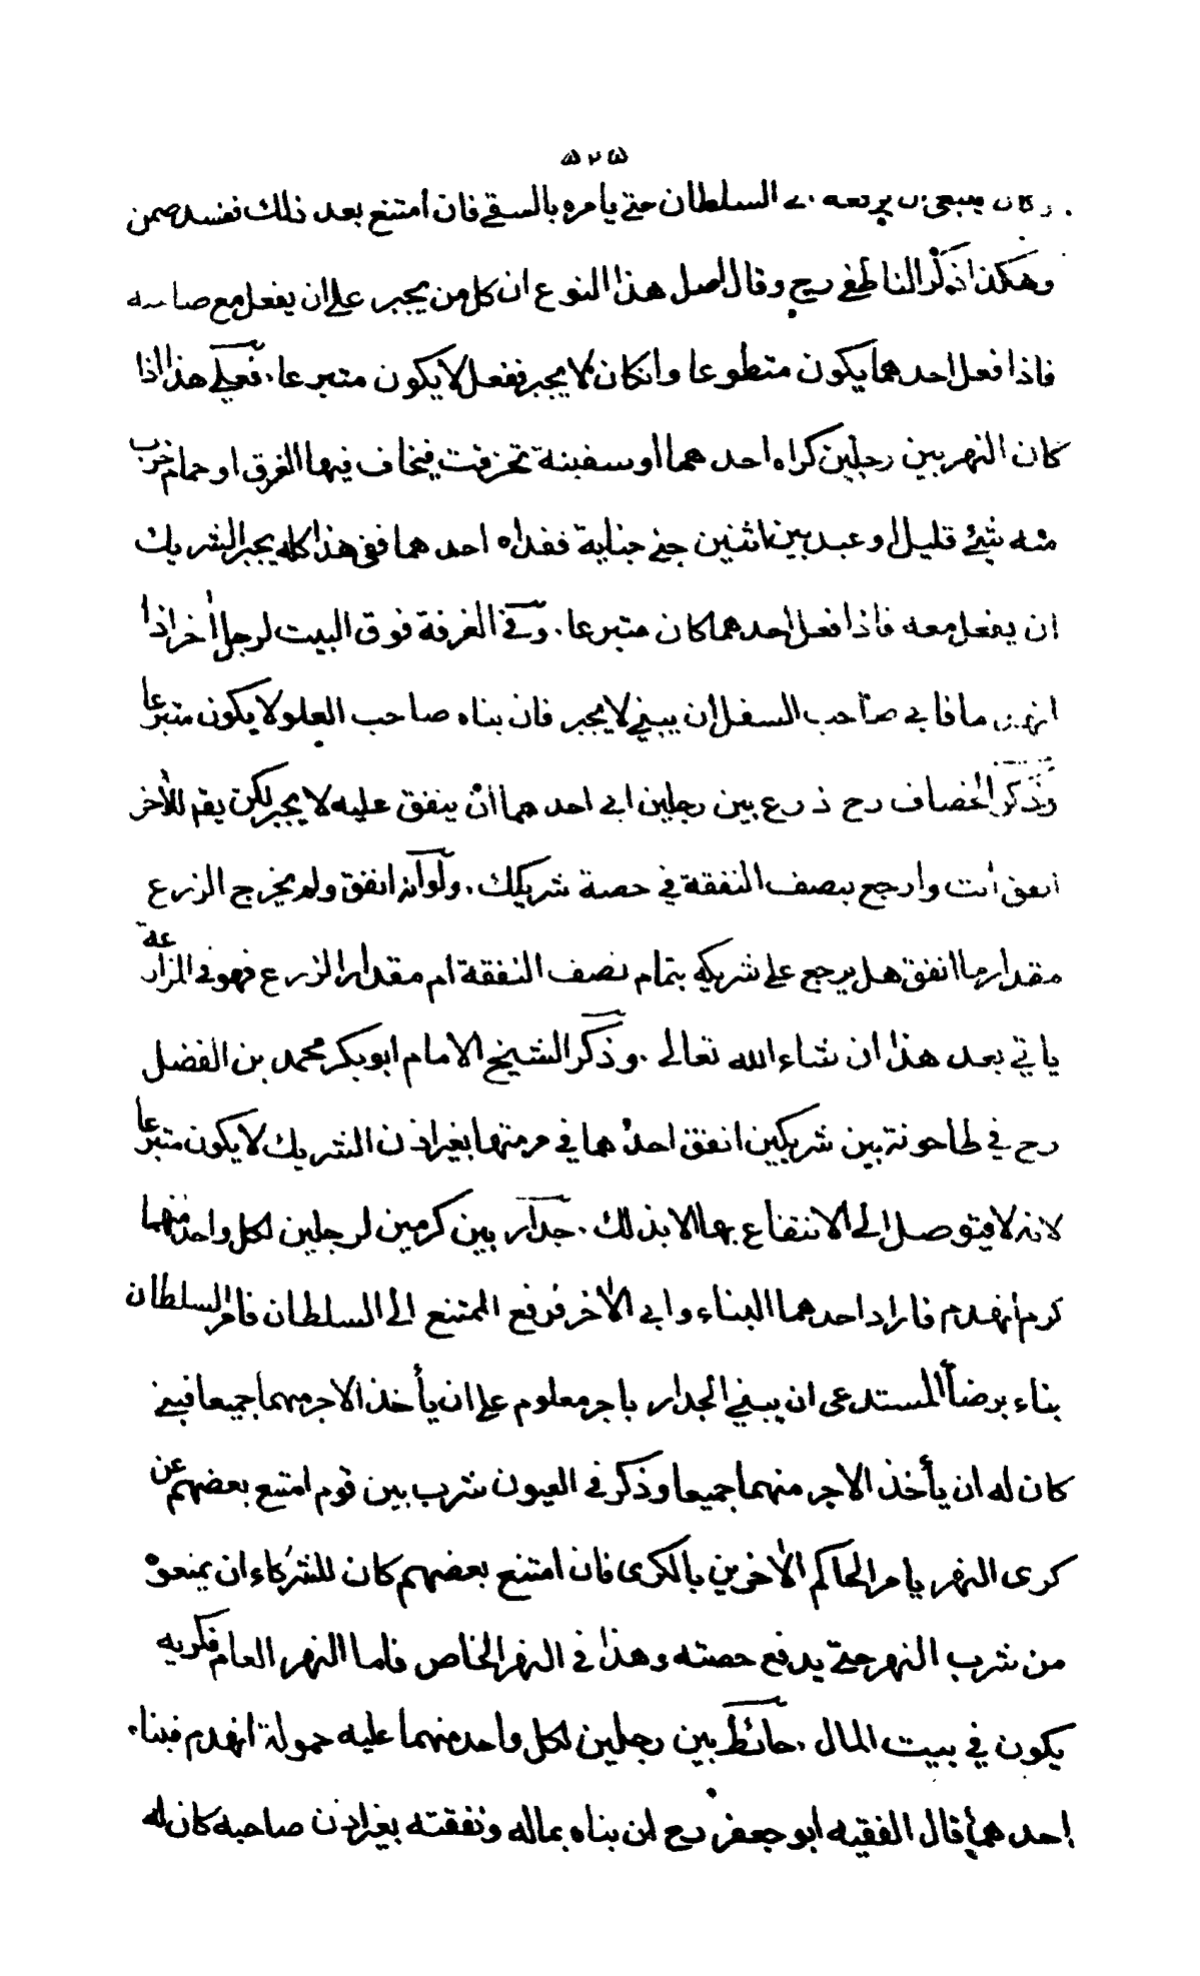 ۵۲۵
السلطان حتى يامره بالسقي فان امتنع بعد ذلك نفسد ضمن
وهكذا ذكر الناطفي رح وقال اصل هذا النوع ان كل من يجبر على ان يفعل مع صاحبه
فاذا فعل احدهما يكون متطوعا وانكان لا يجبر ففعل لا يكون متبرعا، فعلى هذا اذا
كان النهر بين رجلين كراه احدهما او سفينة تخرقت فيخاف فيها الغرق او حمام خرب
منه شئ قليل او عبد بين اثنين جنى جناية ففداه احدهما ففي هذا كله يجبر الشريك
ان يفعل معه فاذا فعل احدهما كان متبرعا، وفي الغرفة فوق البيت لرجل اخر اذا
انهدما فابى صاحب السفل ان يبني لا يجبر فان بناه صاحب العلو لا يكون متبرعا
وذكر الخصاف رح ذرع بين رجلين ابى احدهما ان ينفق عليه لا يجبر لكن يقم للآخر
انفق انت وارجع بنصف النفقة في حصة شريكك، ولو انه انفق ولم يخرج الزرع
مقدار ما انفق هل يرجع على شريكه بتمام نصف النفقة ام مقدار الزرع فهو في المزارعة
ياتي بعد هذا ان شاء الله تعالى، وذكر الشيخ الامام ابو بكر محمد بن الفضل
رح في طاحونة بين شريكين انفق احدهما في مرمتها بغير اذن الشريك لا يكون متبرعا
لانه لا يتوصل الى الانتفاع بها الا بذلك، جدار بين كرمين لرجلين لكل واحد منهما
كرم انهدم فاراد احدهما البناء وابى الاخر فرفع الممتنع الى السلطان فامر السلطان
بناء برضا المستدعى ان يبني الجدار باجر معلوم على ان يأخذ الاجر منهما جميعا فبنى
كان له ان يأخذ الاجر منهما جميعا وذكر في العيون شرب بين قوم امتنع بعضهم عن
كرى النهر يامر الحاكم الاخرين بالكرى فان امتنع بعضهم كان للشركاء ان يمنعوه
من شرب النهر حتى يدفع حصته وهذا في النهر الخاص فاما النهر العام فكريه
يكون في بيت المال، حائط بين رجلين لكل واحد منهما عليه حمولة انهدم فبناه
احدهما قال الفقيه ابو جعفر رح ان بناه بماله ونفقته بغير اذن صاحبه كان له